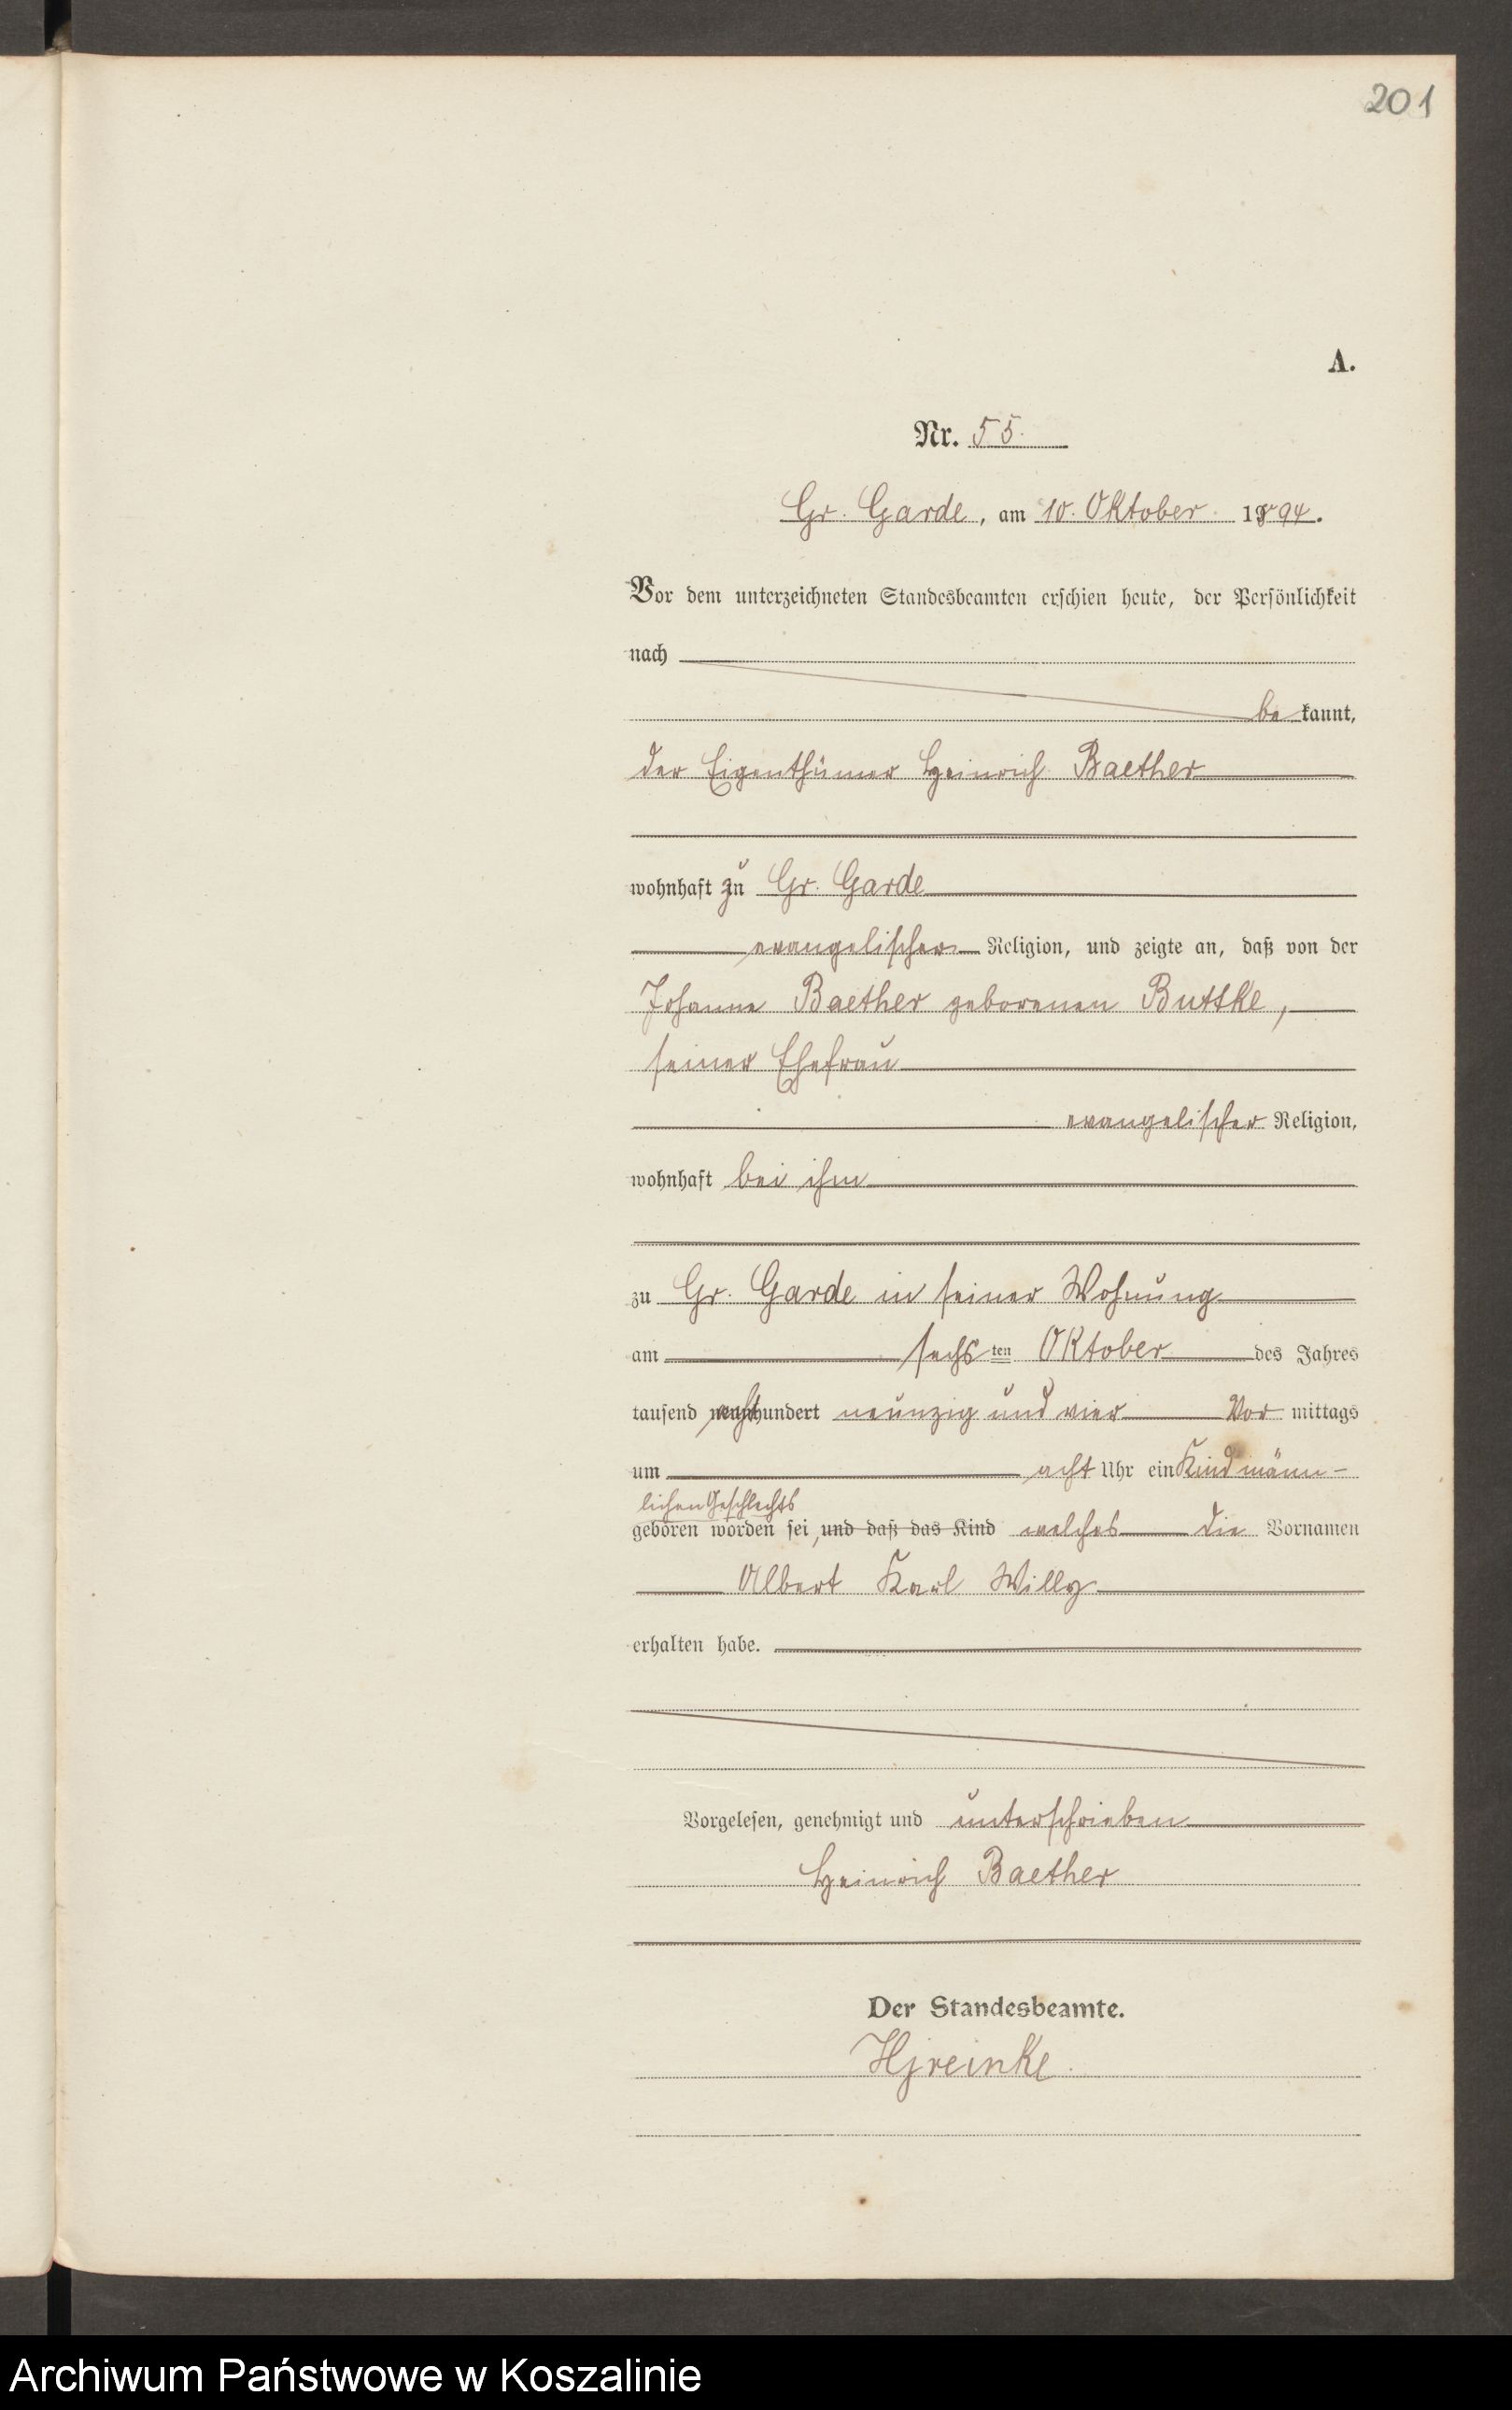 201
A.
Nr. 55.
Gr. Garde, am 10. Oktober 1894.
Vor dem unterzeichneten Standesbeamten erschien heute, der Persönlichkeit
nach
bekannt,
der Eigenthümer Heinrich Baether
wohnhaft zu Gr. Garde
evangelischer Religion, und zeigte an, daß von der
Johanne Baether geborenen Buttke,
seiner Ehefrau
evangelischer Religion,
wohnhaft bei ihm
zu Gr. Garde in seiner Wohnung
am sechsten Oktober des Jahres
tausend achthundert neunzig und vier Vor mittags
um acht Uhr ein Kind männ-
lichen Geschlechts
geboren worden sei, und daß das Kind welches die Vornamen
Albert Karl Willy
erhalten habe.
Vorgelesen, genehmigt und unterschrieben
Heinrich Baether
Der Standesbeamte.
Archiwum Państwowe w Koszalinie